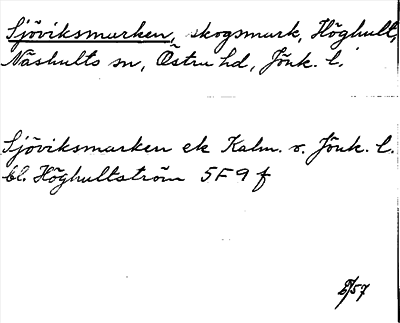 Sjöviksmarken, skogsmark, Höghult,
Näshults sn, Östra hd, Jönk. l.
Sjöviksmarken ek Kalm. o. Jönk. l.
bl. Höghultström 5F9f
/57